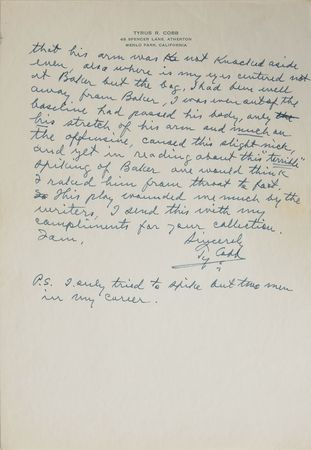 TYRUS R. COBB
48 SPENCER LANE, ATHERTON
MENLO PARK, CALIFORNIA
that his arm was not knocked aside
even, also where is my eyes centered not
at Baker but the bag, I had been well
away from Baker, I was even out of the
baseline had passed his body, only
his stretch of his arm and much on
the offensive, caused this slight nick,
and yet in reading about this "terrible"
spiking of Baker one would think
I raked him from throat to foot.
This play wounded me much by the
writers, I send this with my
compliments for your collection.
I am,
Sincerely
Ty Cobb
P.S. I only tried to spike but two men
in my career.